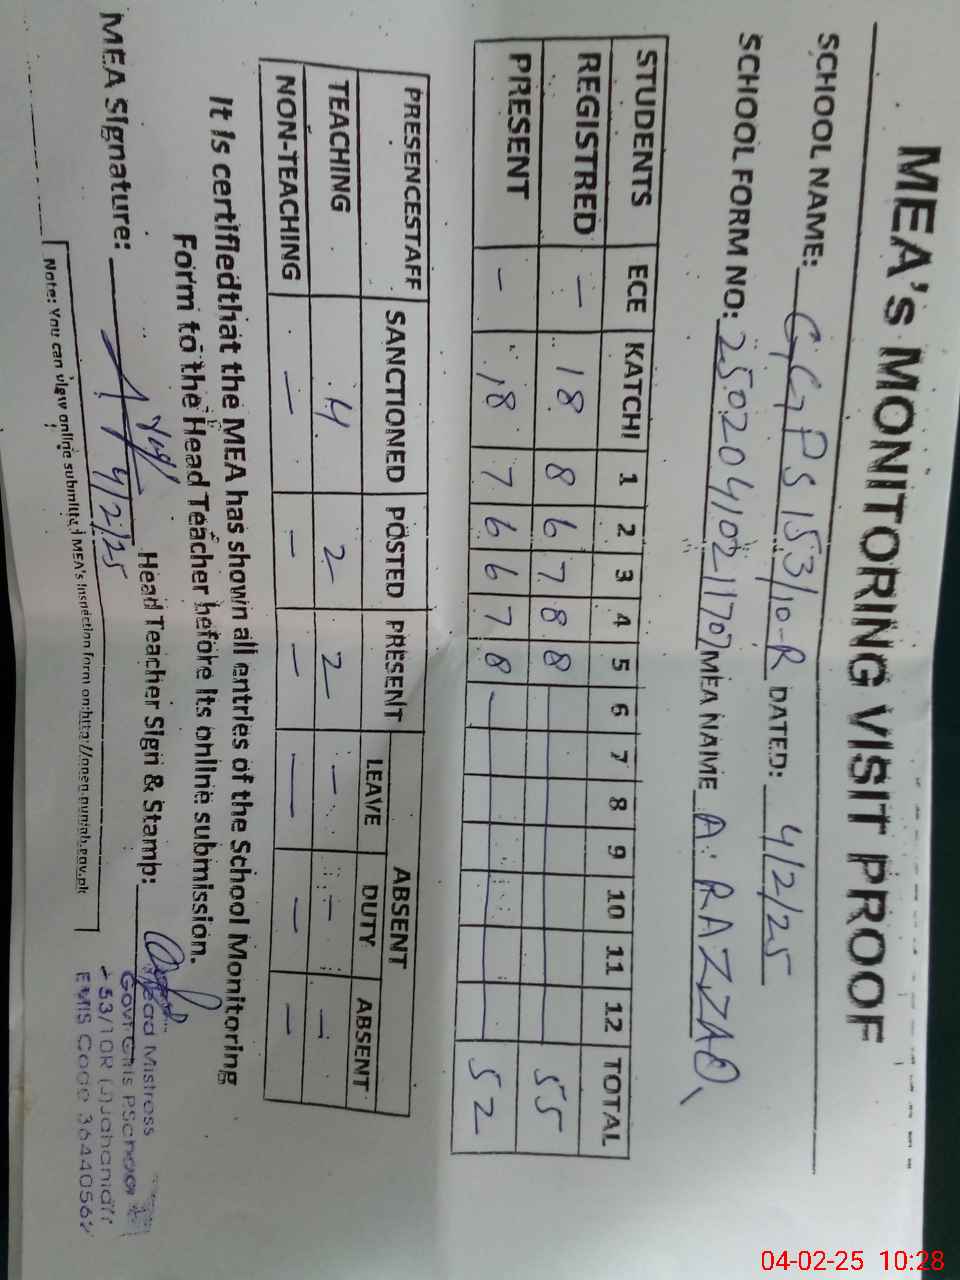 MEA's MONITORING VISIT PROOF
SCHOOL NAME: GGPS 153/10-R DATED: 4/2/25
SCHOOL FORM NO: 25020410211707 MEA NAME A. RAZZAQ
STUDENTS ECE KATCHI 1 2 3 4 5 6 7 8 9 10 11 12 TOTAL
REGISTRED - 18 8 6 7 8 8 55
PRESENT - 18 7 6 6 7 8 - 52
PRESENCESTAFF SANCTIONED POSTED PRESENT ABSENT
LEAVE DUTY ABSENT
TEACHING 4 2 2 - - -
NON-TEACHING - - - - - -
It is certifiedthat the MEA has shown all entries of the School Monitoring
Form to the Head Teacher before its online submission.
MEA Signature: 4/2/25 Head Teacher Sign & Stamp:
Head Mistress
Govt Girls P.School
153/10R (J)Jahania
EMIS Code 3644056
Note: You can view online submitted MEA's Inspection form on:http://open.punjab.gov.pk
04-02-25 10:28